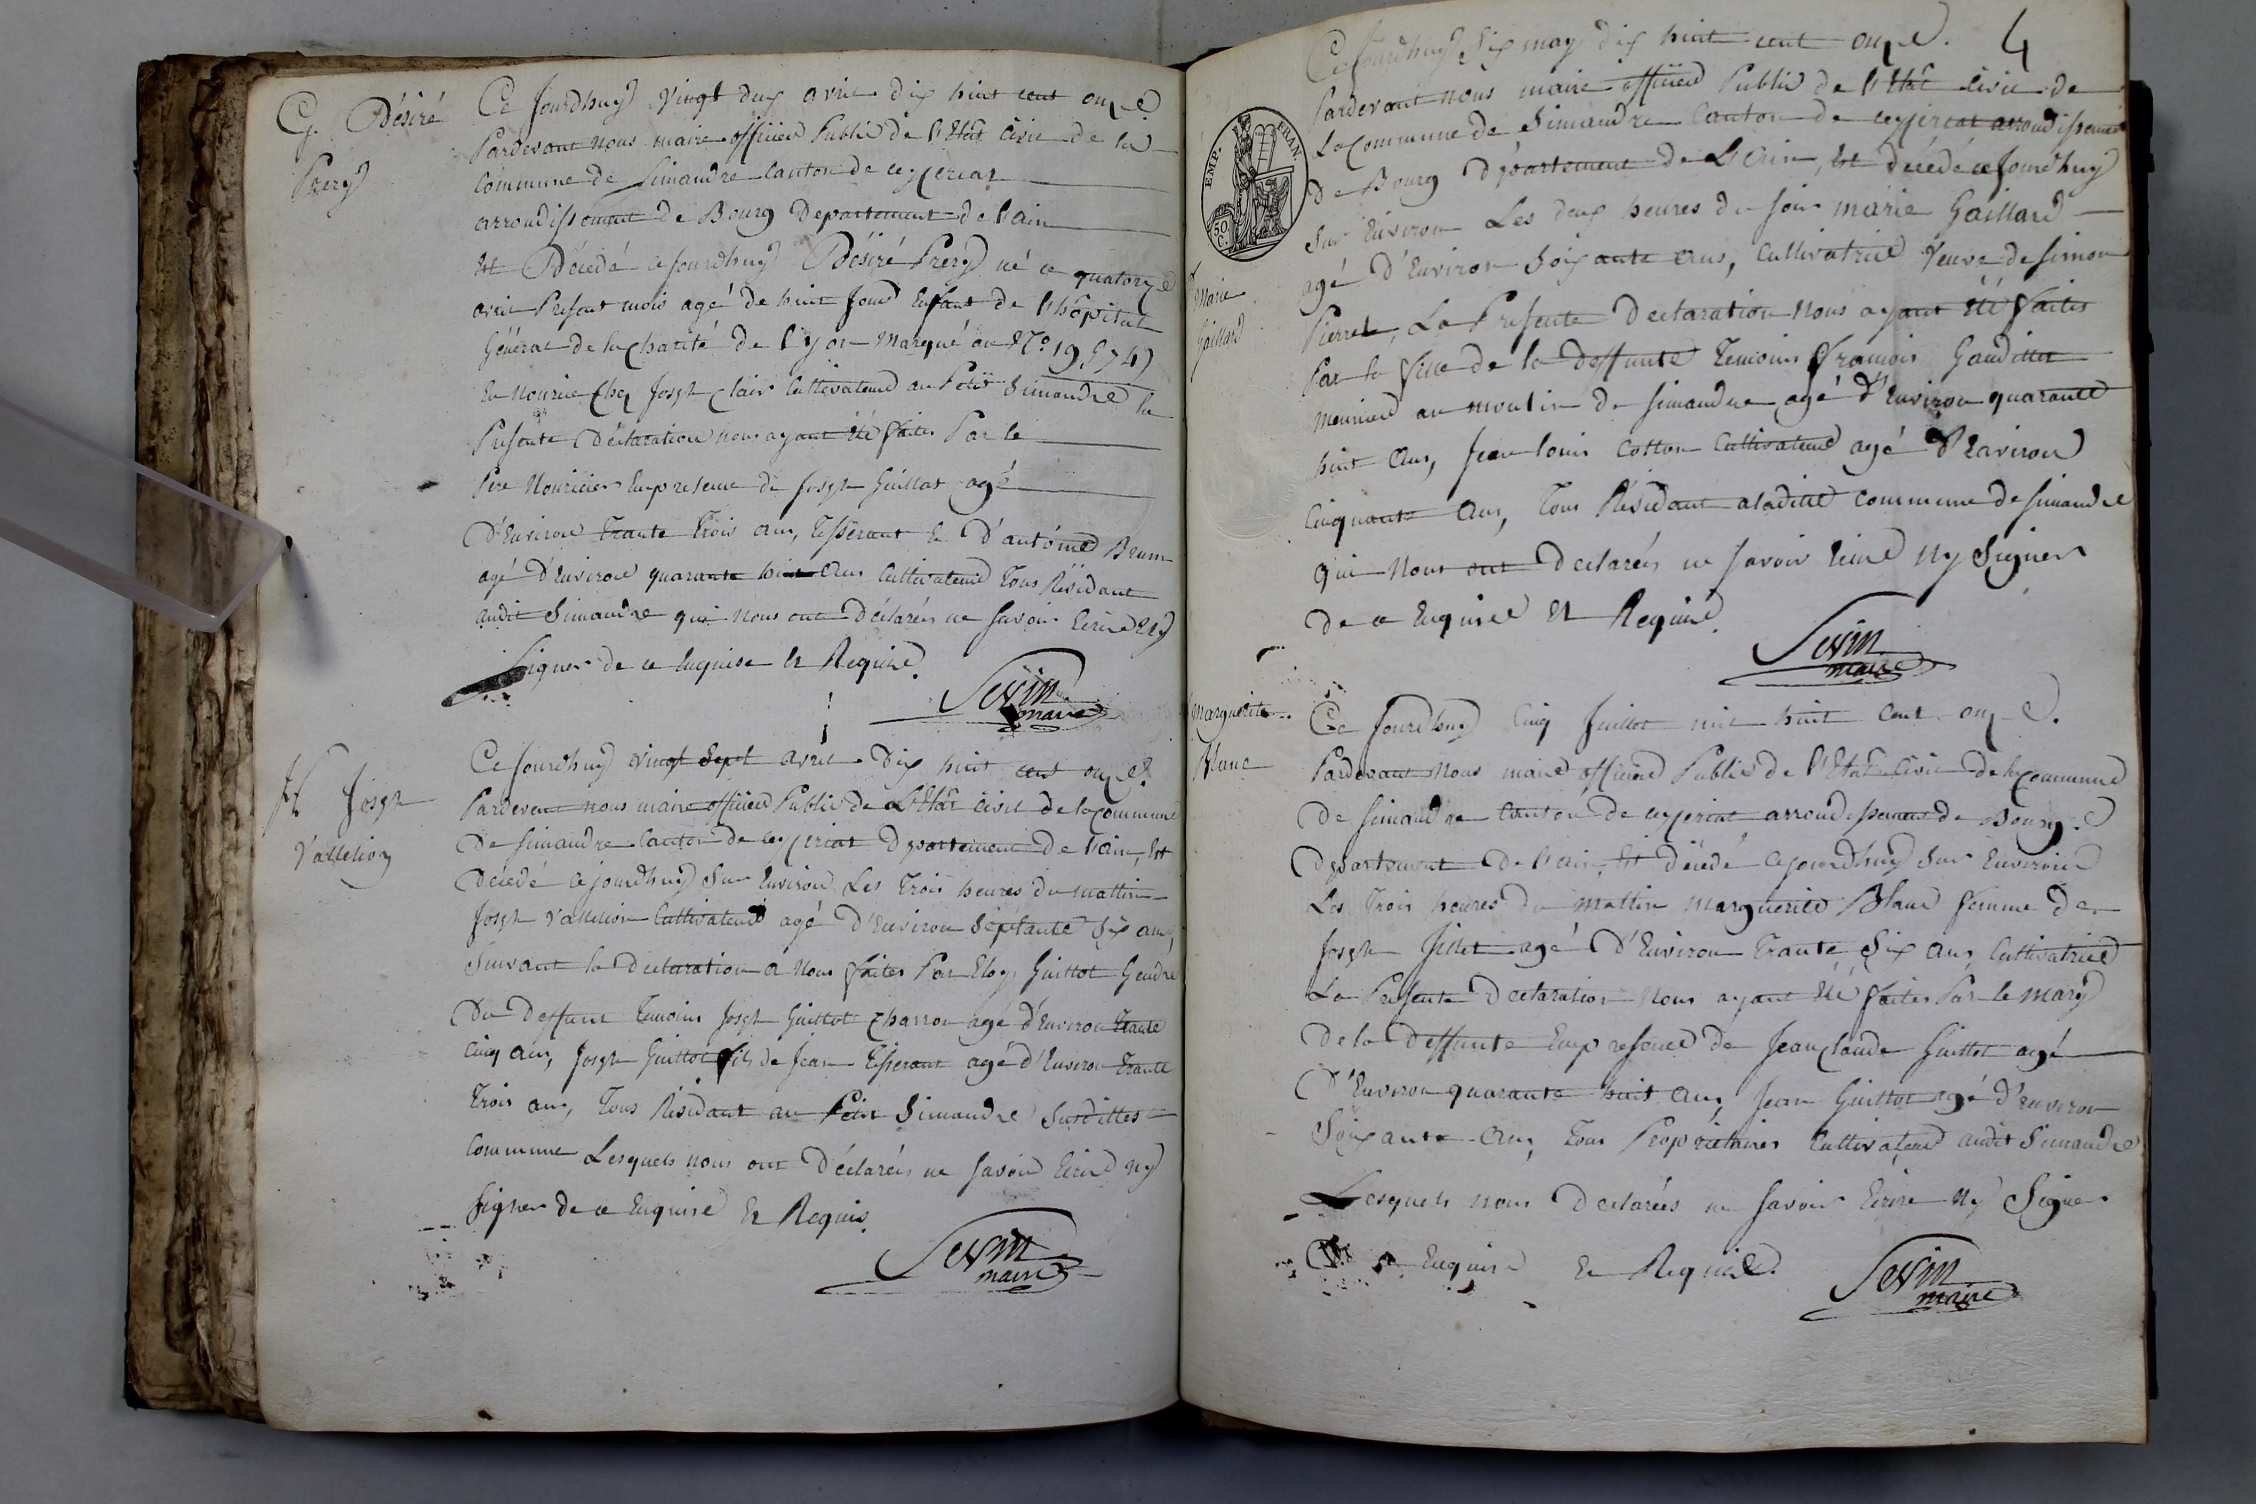 G. Désiré
Prery
Ce Jourdhuy vingt deux avril dix huit cent onze
Pardevant nous maire officier Public de l'Etat Civil de la
Commune de Simandre Canton de ceyzeriat
arrondissement de Bourg Departement de l'ain
Est Décédé cejourdhuy Désiré Prery né ce quatorze
avril Present mois agé de huit Jours Enfant de l'hôpital
Général de la Charité de Lyon Marqué au No.
En nourice chez Joseph Clair Cultivateur au Petit Simandre la
Presente Déclaration nous ayant été faites Par le
Pere Nouricier En presence de Joseph Guillot agé
D'Environ Trante Trois ans, Tisserant & D'antoine Brun
agé D'Environ quarante huit ans Cultivateurs Tous Résidant
audit Simandre qui nous ont Déclarés ne Savoir Ecrire Ny
Signer de ce Enquise et Requise.
Sevin
maire
H Joseph
Vallelion
Ce Jourdhuy vingt Sept avril Dix huit cent onze.
Pardevant nous maire officier Public de L'Etat Civil de la Commune
De Simandre Canton de ceyzeriat Departement De l'ain, Est
Décédé cejourdhuy Sur Environ Les Trois heures du mattin
Joseph Vallelion Cultivateur agé D'Environ Séptante Six ans,
Suivant la Declaration a Nous faites Par Eloy Guillot Gendre
Du Deffunt Temoins Joseph Guillot Charron agé d'Environ Trante
Cinq ans, Joseph Guillot fils de Jean Tisserant agé d'Environ Trante
Trois ans, Tous Résidant au Petit Simandre Susdittes
Commune Lesquels nous ont Déclarés ne Savoir Ecrire ny
Signer de ce Enquise Et Requis.
Sevin
maire
4
EMP. FRAN.
50 C.
Marie
Gaillard
Ce Jourdhuy Six may dix huit cent onze.
Pardevant nous maire officier Public de l'Etat civil de
La Commune de Simandre Canton de ceyzeriat arrondissement
de Bourg Département de L'Ain, Est décédé cejourdhuy
Sur Environ Les deux heures du Soir marie Gaillard
agé D'Environ Soixante ans, Cultivatrice Veuve de Simon
Pierrel, La Presente Declaration Nous ayant été faites
Par la fille de la deffunte Temoins francois Gaudillat
meunier au moulin de Simandre agé d'Environ quarante
huit ans, Jean louis Cotton Cultivateur agé d'Environ
Cinquante ans, Tous Résidant aladitte commune de Simandre
qui Nous ont Declarés ne Savoir Ecrire Ny Signer
De ce Enquise Et Requise.
Sevin
maire
Marguerite
Blanc
Ce Jourdhuy Cinq Juillet mil huit Cent onze.
Pardevant Nous maire officier Public de l'Etat Civil De la Commune
De Simandre Canton de ceyzeriat arrondissement de Bourg
Departement De l'ain, Est décédé cejourdhuy Sur Environ
Les Trois heures Du Mattin Marguerite Blanc femme De
Joseph Jillet agé D'Environ Trante Six ans, Cultivatrice
La Presente Declaration Nous ayant été faites Par le mary
De la Deffunte En presence de Jean Claude Guillot agé
D'Environ quarante huit ans, Jean Guillot agé D'Environ
Soixante ans, Tous Proprietaires Cultivateurs audit Simandre
Lesquels nous Declarés ne Savoir Ecrire Ny Signer
De ce Enquise Et Requise.
Sevin
maire